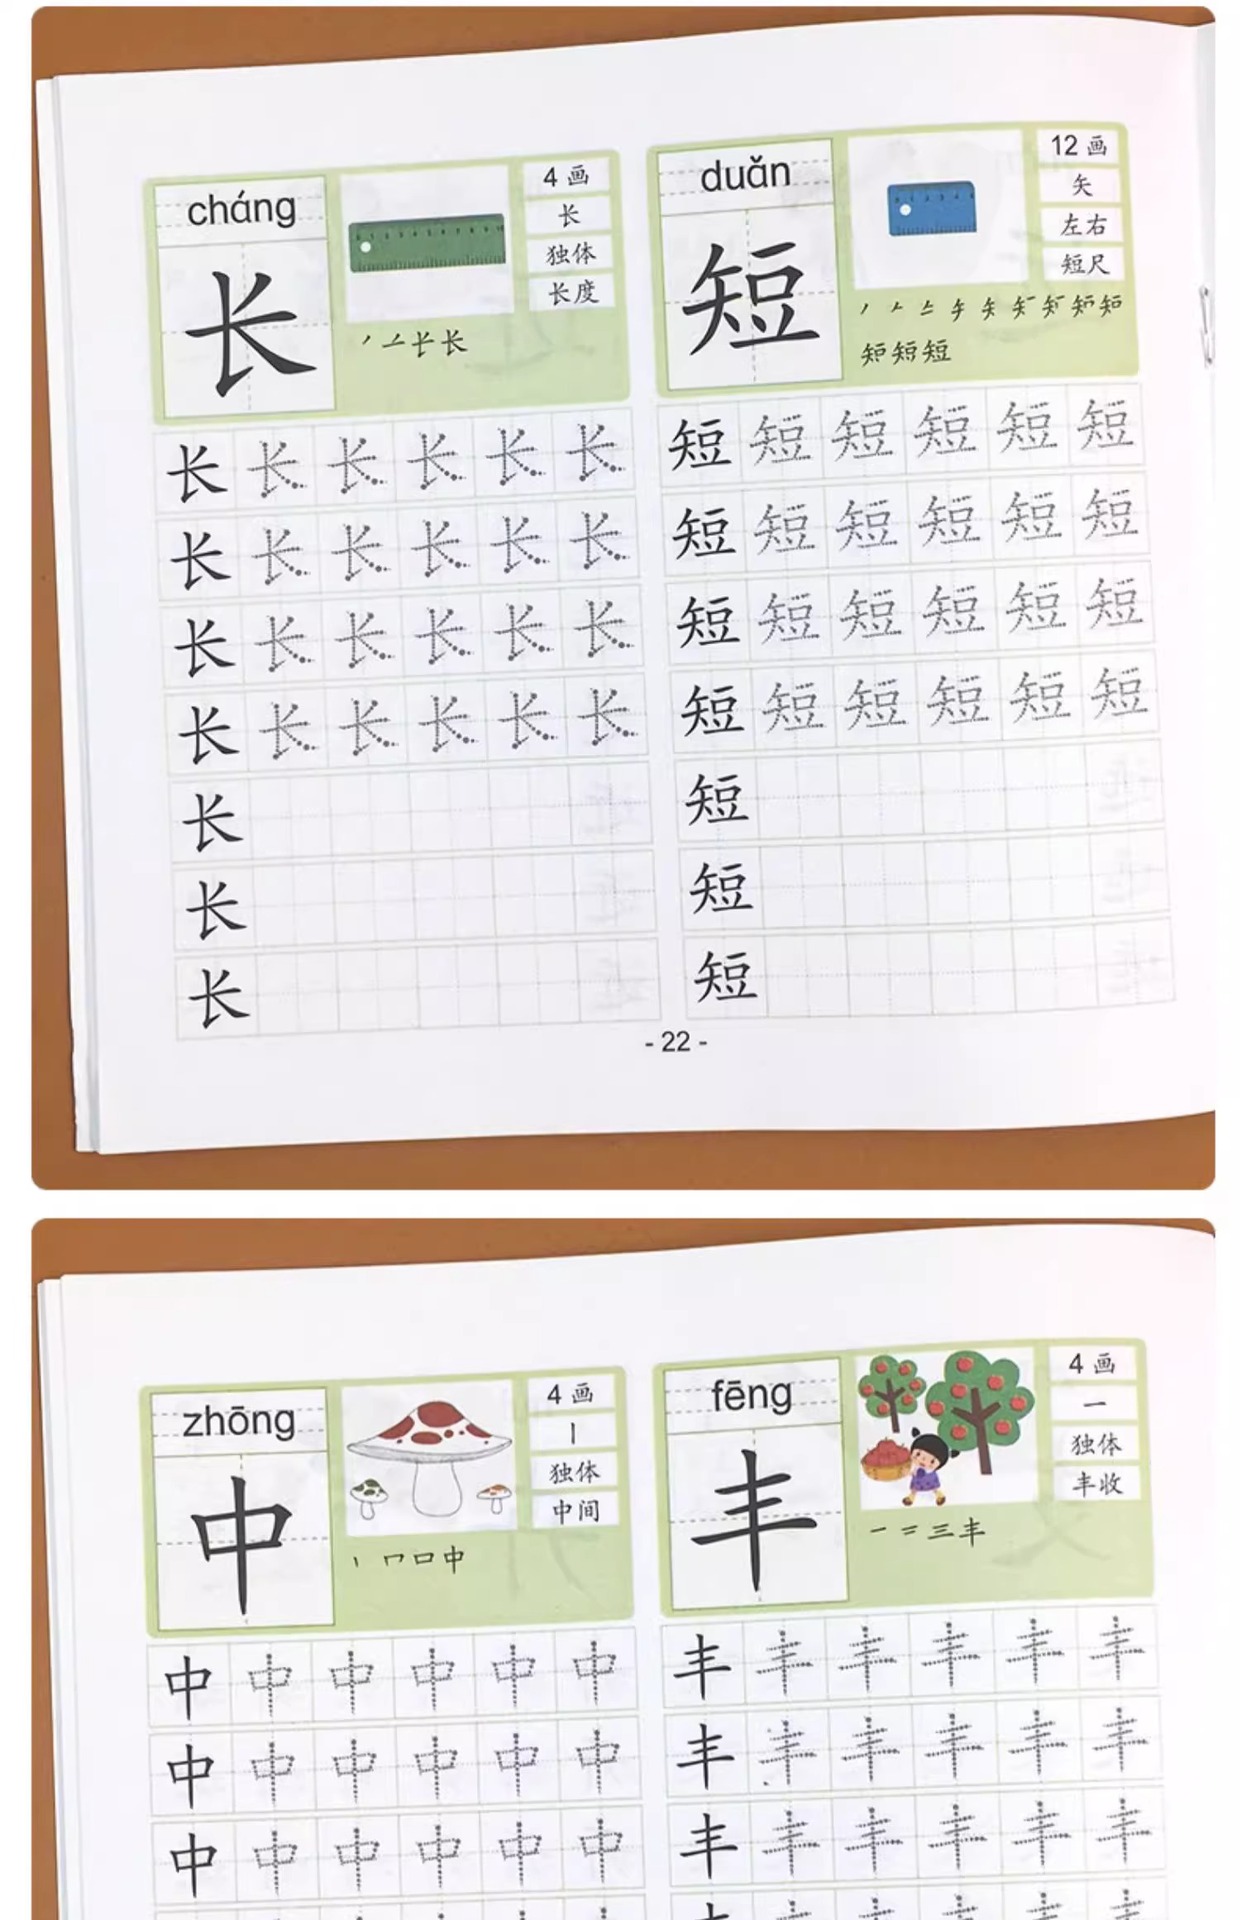 cháng
长
4 画
长
独体
长度
㇒ 𠂉 长 长
duǎn
短
12 画
矢
左右
短尺
长 长 长 长 长 长
长 长 长 长 长 长
长 长 长 长 长 长
长 长 长 长 长 长
长
长
长
短 短 短 短 短 短
短 短 短 短 短 短
短 短 短 短 短 短
短 短 短 短 短 短
短
短
短
- 22 -
zhōng
中
4 画
丨
独体
中间
丨 冂 口 中
fēng
丰
4 画
一
独体
丰收
一 二 三 丰
中 中 中 中 中 中
中 中 中 中 中 中
中 中 中 中 中 中
丰 丰 丰 丰 丰 丰
丰 丰 丰 丰 丰 丰
丰 丰 丰 丰 丰 丰